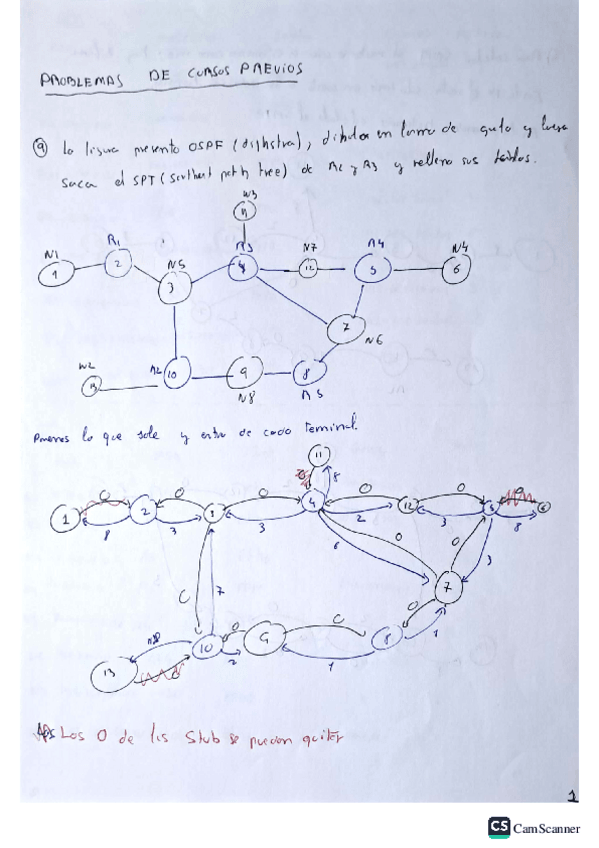 PROBLEMAS DE CURSOS PREVIOS
a) La figura presenta OSPF (dijkstra), dibuja en forma de grafo y luego
sacar el SPT (shortest path tree) de R2 y R3 y rellena sus tablas.
N3
11
N1 R1 N5 R3 N7 R4 N4
1 2 3 4 12 5 6
7
N6
N2 R2 N8 R5
13 10 9 8
Ponemos lo que sale y entra de cada terminal.
11
8
1 0 2 0 3 0 4 0 12 0 5 6
8 3 3 2 3 8
6 0 0 3
7
0 7 0 0 0 1
13 10 2 9 1 8
Los 0 de los Stub se pueden quitar
1
CS CamScanner